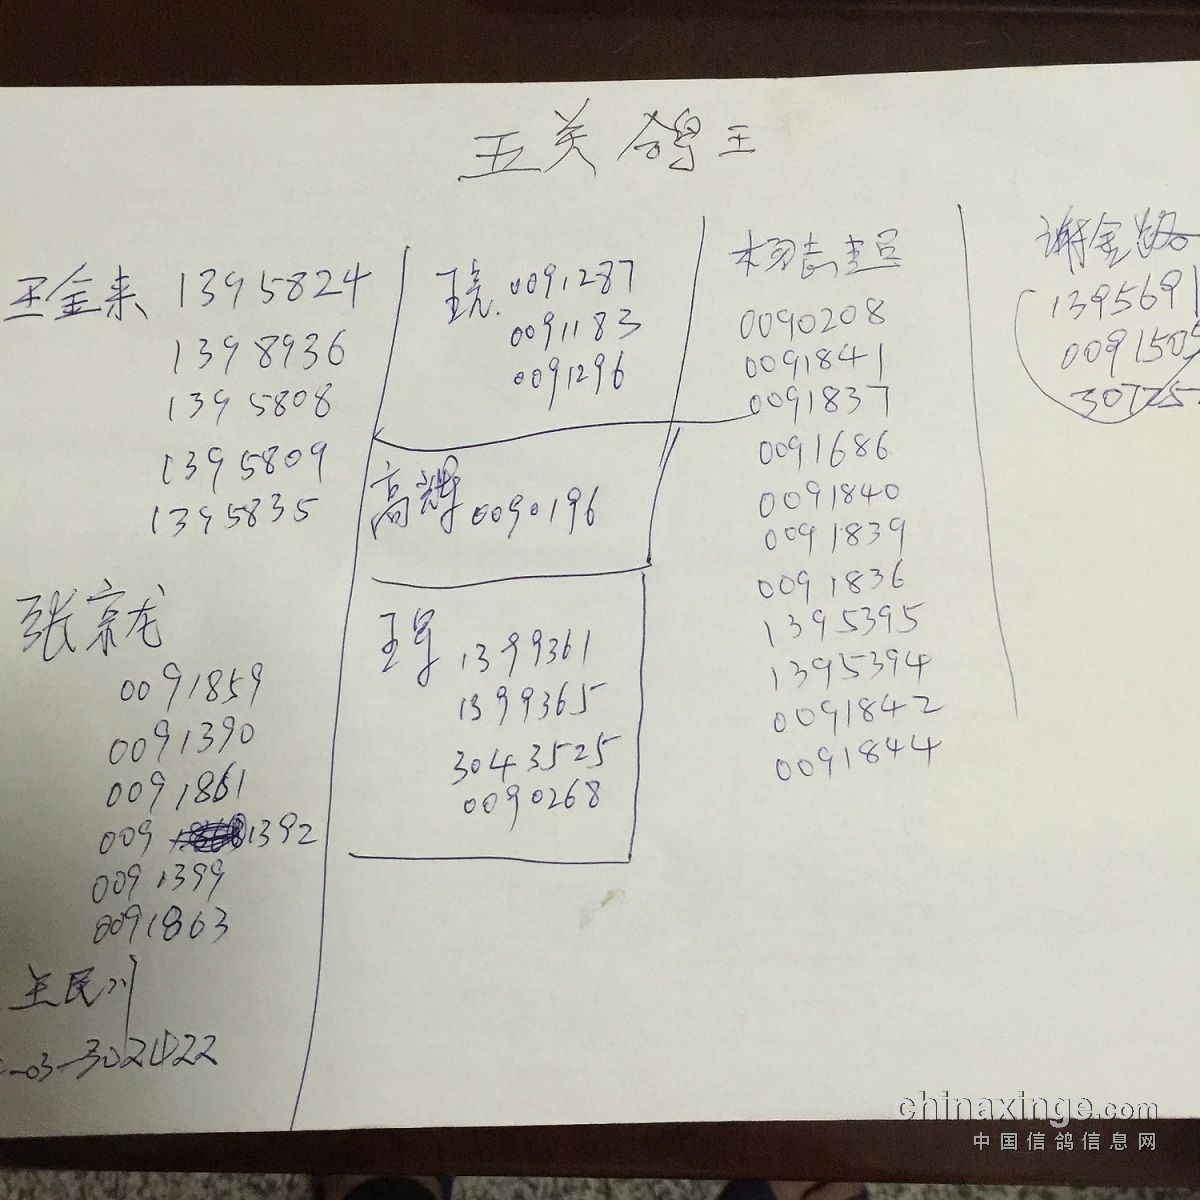 五关鸽王
王金来 1395824
1398936
1395808
1395809
1395835
张宗龙
0091859
0091390
0091861
009 1392
0091399
0091863
王民川
-03-302422
王亮 0091287
0091183
0091296
高辉 0090196
王军 1399361
1399365
3043525
0090268
杨志
0090208
0091841
0091837
0091686
0091840
0091839
0091836
1395395
1395394
0091842
0091844
谢金路
1395691
0091509
30725
chinaxinge.com
中国信鸽信息网